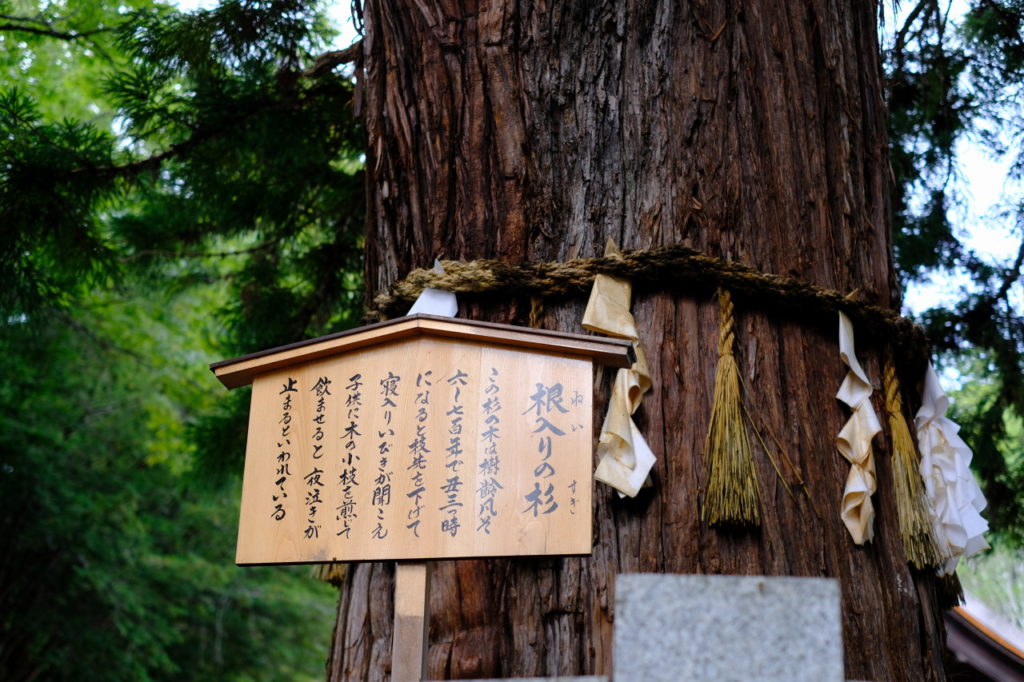 根入りの杉
ねい
すぎ
この杉の木は樹齢凡そ
六〜七百年で丑三つ時
になると枝先を下げて
寝入りいびきが聞こえ
子供に木の小枝を煎じて
飲ませると 夜泣きが
止まるといわれている